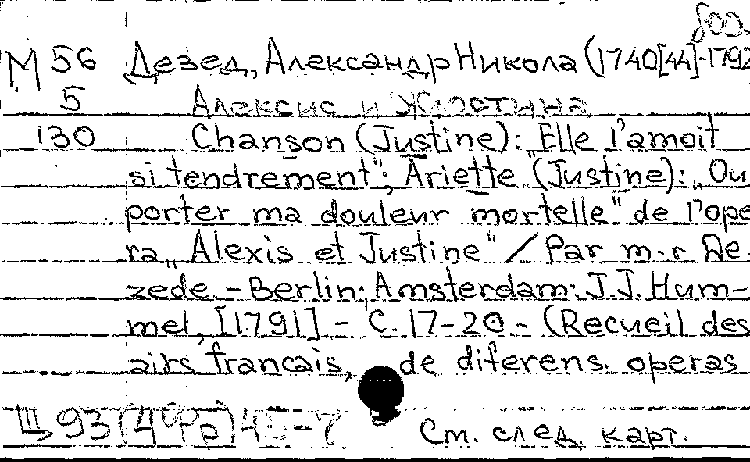 М 56 Дезед, Александр Никола (1740[44]-1792
5 Алексис и Жюстина
130 Chanson (Justine): "Elle l'amoit
si tendrement"; Ariette (Justine): „Ou
porter ma douleur mortelle" de l'ope
ra „Alexis et Justine" / Par m-r De
zede. - Berlin; Amsterdam: J.J. Hum-
mel, [1791] - C. 17-20 - (Recueil des
airs francais, de diferens operas
Ш 93(4Фр)4 -7 См. след. карт.